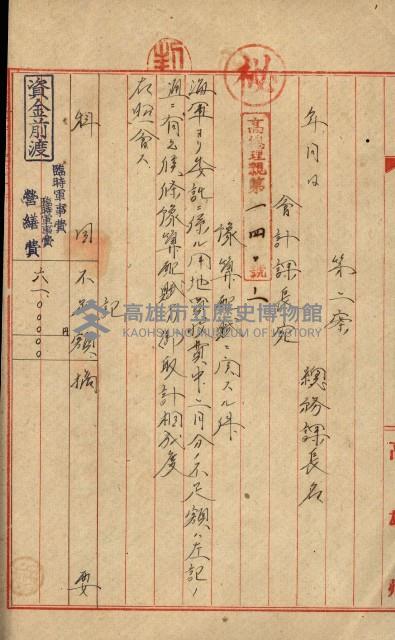 秘
第二案
總務課長名
年月日
會計課長宛
高總理親第一四〇號ノ二
豫算配賦ニ関スル件
海軍ヨリ委託ニ係ル用地買收費中二月分ノ不足額ハ左記ノ
通ニ有之候條豫算配賦御取計相成度
右照會ス
記
科目 不足額 摘要
資金前渡
臨時軍事費
臨時軍事費
營繕費
円
六一〇〇〇〇〇
高雄市立歷史博物館
KAOHSIUNG MUSEUM OF HISTORY
高雄州